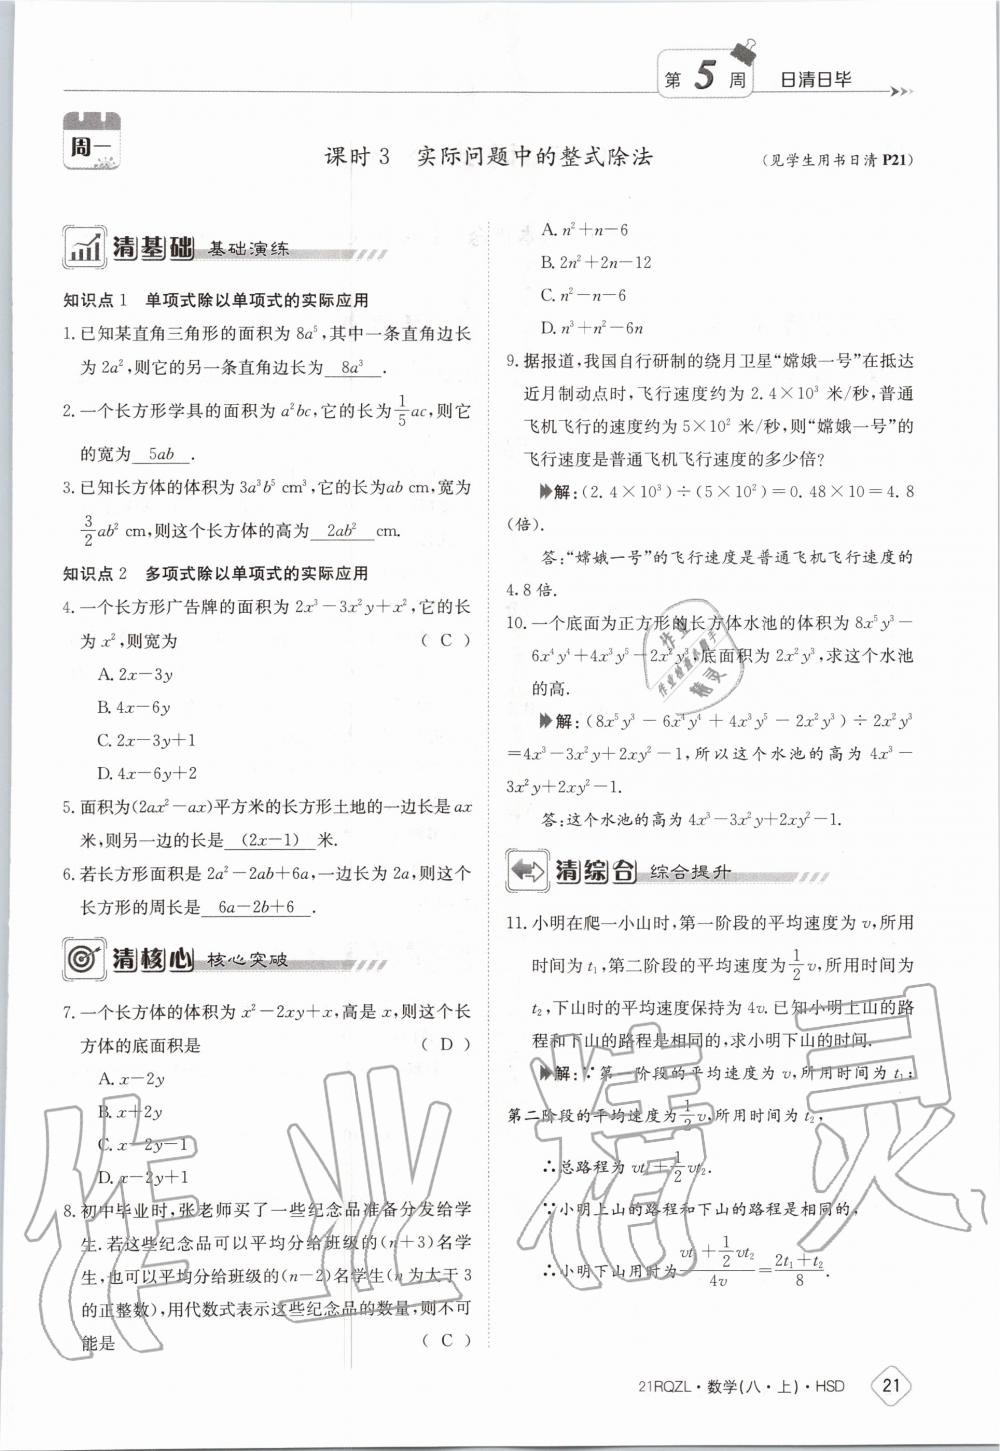 第5周 日清日毕
周一
课时3 实际问题中的整式除法
(见学生用书日清P21)
清基础 基础演练
知识点1 单项式除以单项式的实际应用
1. 已知某直角三角形的面积为8a⁵,其中一条直角边长
为2a²,则它的另一条直角边长为 8a³ .
2. 一个长方形学具的面积为a²bc,它的长为1/5ac,则它
的宽为 5ab .
3. 已知长方体的体积为3a³b⁵ cm³,它的长为ab cm,宽为
3/2ab² cm,则这个长方体的高为 2ab² cm.
知识点2 多项式除以单项式的实际应用
4. 一个长方形广告牌的面积为2x³-3x²y+x²,它的长
为x²,则宽为 ( C )
A. 2x-3y
B. 4x-6y
C. 2x-3y+1
D. 4x-6y+2
5. 面积为(2ax²-ax)平方米的长方形土地的一边长是ax
米,则另一边的长是 (2x-1) 米.
6. 若长方形面积是2a²-2ab+6a,一边长为2a,则这个
长方形的周长是 6a-2b+6 .
清核心 核心突破
7. 一个长方体的体积为x²-2xy+x,高是x,则这个长
方体的底面积是 ( D )
A. x-2y
B. x+2y
C. x-2y-1
D. x-2y+1
8. 初中毕业时,张老师买了一些纪念品准备分发给学
生.若这些纪念品可以平均分给班级的(n+3)名学
生,也可以平均分给班级的(n-2)名学生(n为大于3
的正整数),用代数式表示这些纪念品的数量,则不可
能是 ( C )
A. n²+n-6
B. 2n²+2n-12
C. n²-n-6
D. n³+n²-6n
9. 据报道,我国自行研制的绕月卫星“嫦娥一号”在抵达
近月制动点时,飞行速度约为2.4×10³ 米/秒,普通
飞机飞行的速度约为5×10² 米/秒,则“嫦娥一号”的
飞行速度是普通飞机飞行速度的多少倍?
解:(2.4×10³)÷(5×10²)=0.48×10=4.8
(倍).
答:“嫦娥一号”的飞行速度是普通飞机飞行速度的
4.8倍.
10. 一个底面为正方形的长方体水池的体积为8x⁵y³-
6x⁴y⁴+4x³y⁵-2x²y³,底面积为2x²y³,求这个水池
的高.
解:(8x⁵y³-6x⁴y⁴+4x³y⁵-2x²y³)÷2x²y³
=4x³-3x²y+2xy²-1,所以这个水池的高为4x³-
3x²y+2xy²-1.
答:这个水池的高为4x³-3x²y+2xy²-1.
清综合 综合提升
11. 小明在爬一小山时,第一阶段的平均速度为v,所用
时间为t₁,第二阶段的平均速度为1/2v,所用时间为
t₂,下山时的平均速度保持为4v.已知小明上山的路
程和下山的路程是相同的,求小明下山的时间.
解:∵第一阶段的平均速度为v,所用时间为t₁;
第二阶段的平均速度为1/2v,所用时间为t₂,
∴总路程为vt₁+1/2vt₂.
∵小明上山的路程和下山的路程是相同的,
∴小明下山用时为(vt₁+1/2vt₂)/4v=(2t₁+t₂)/8.
21RQZL·数学(八·上)·HSD 21
作业精灵